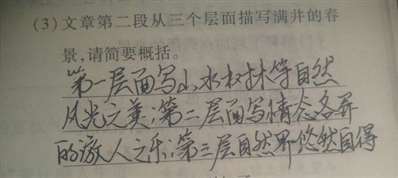 (3)文章第二段从三个层面描写满井的春
景,请简要概括。
第一层面写山水树林等自然
风光之美;第二层面写情态各异
的游人之乐;第三层自然界悠然自得